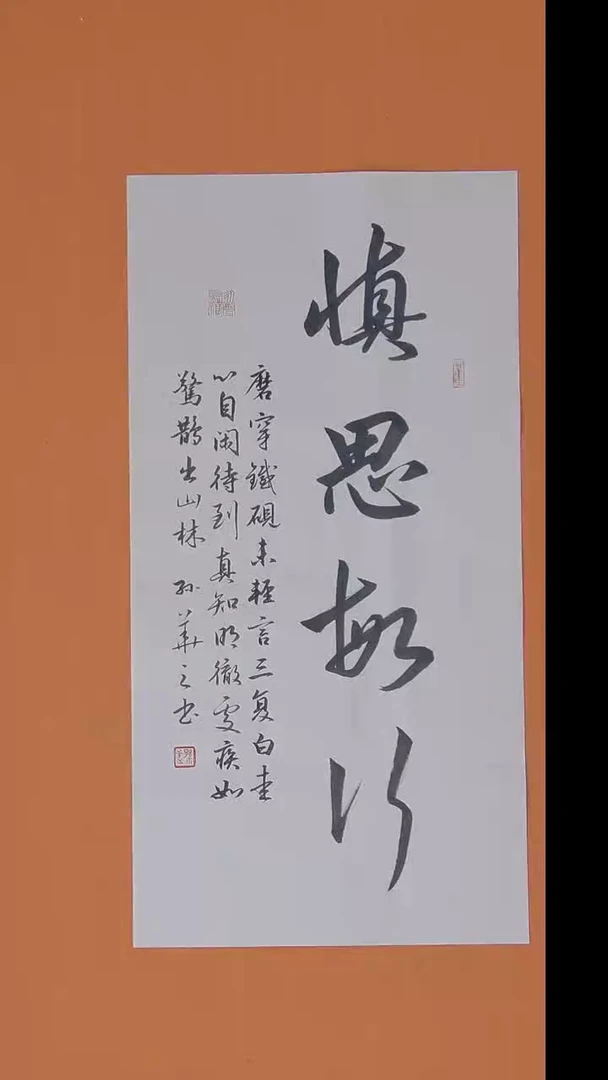 慎思敏行
磨穿鐵硯未輕言三复白圭
心自闲待到真知明徹处疾如
驚鵲出山林 孙華之书